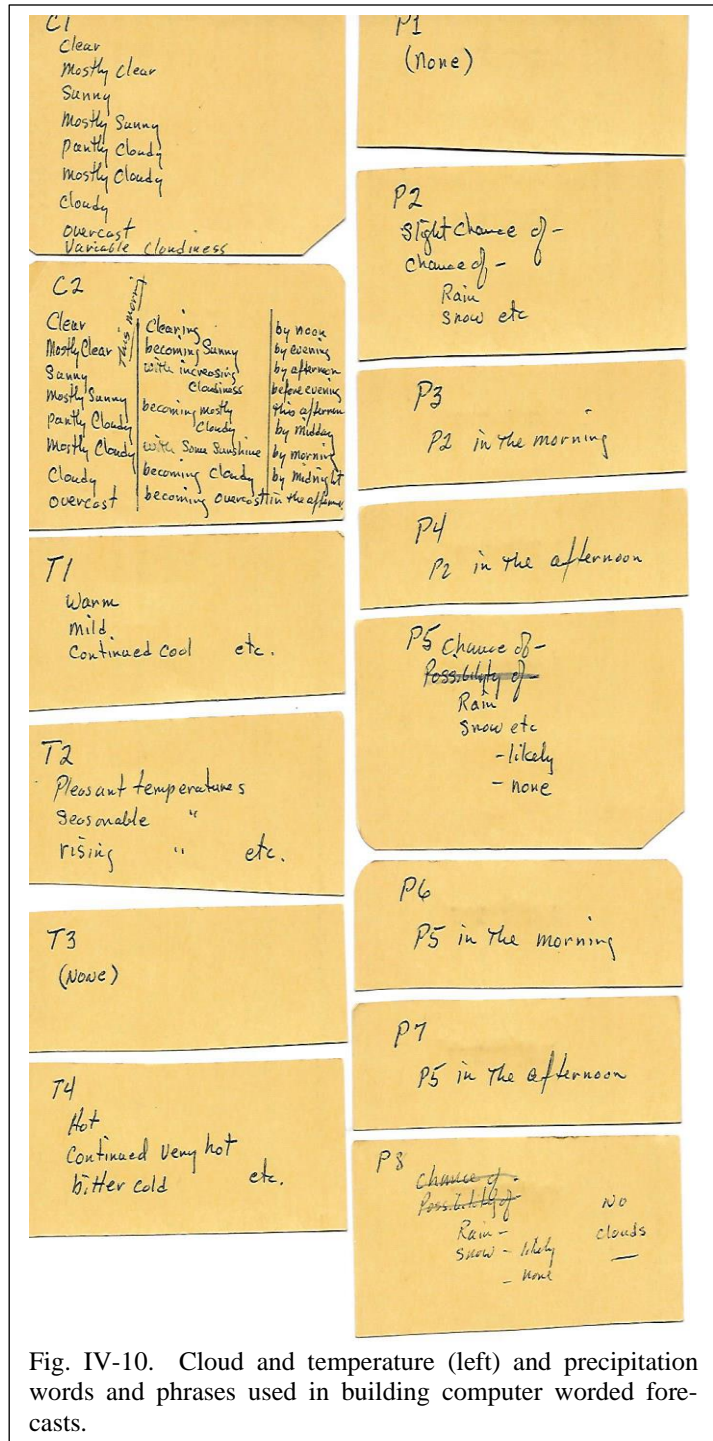 C1
Clear
Mostly Clear
Sunny
Mostly Sunny
Partly Cloudy
Mostly Cloudy
Cloudy
Overcast
Variable Cloudiness
C2
Clear
Mostly Clear
Sunny
Mostly Sunny
Partly Cloudy
Mostly Cloudy
Cloudy
Overcast
This morning
Clearing
becoming Sunny
with increasing
Cloudiness
becoming mostly
Cloudy
with Some Sunshine
becoming cloudy
becoming overcast
by noon
by evening
by afternoon
before evening
this afternoon
by midday
by morning
by midnight
in the afternoon
T1
Warm
Mild
Continued Cool etc.
T2
Pleasant temperatures
Seasonable "
rising " etc.
T3
(None)
T4
Hot
Continued very hot
bitter cold etc.
P1
(None)
P2
Slight Chance of -
Chance of -
Rain
Snow etc
P3
P2 in the morning
P4
P2 in the afternoon
P5 Chance of -
Possibility of -
Rain
Snow etc
- likely
- none
P6
P5 in the morning
P7
P5 in the afternoon
P8
Chance of -
Possibility of
Rain -
Snow - likely
- none
No
clouds
Fig. IV-10. Cloud and temperature (left) and precipitation
words and phrases used in building computer worded fore-
casts.